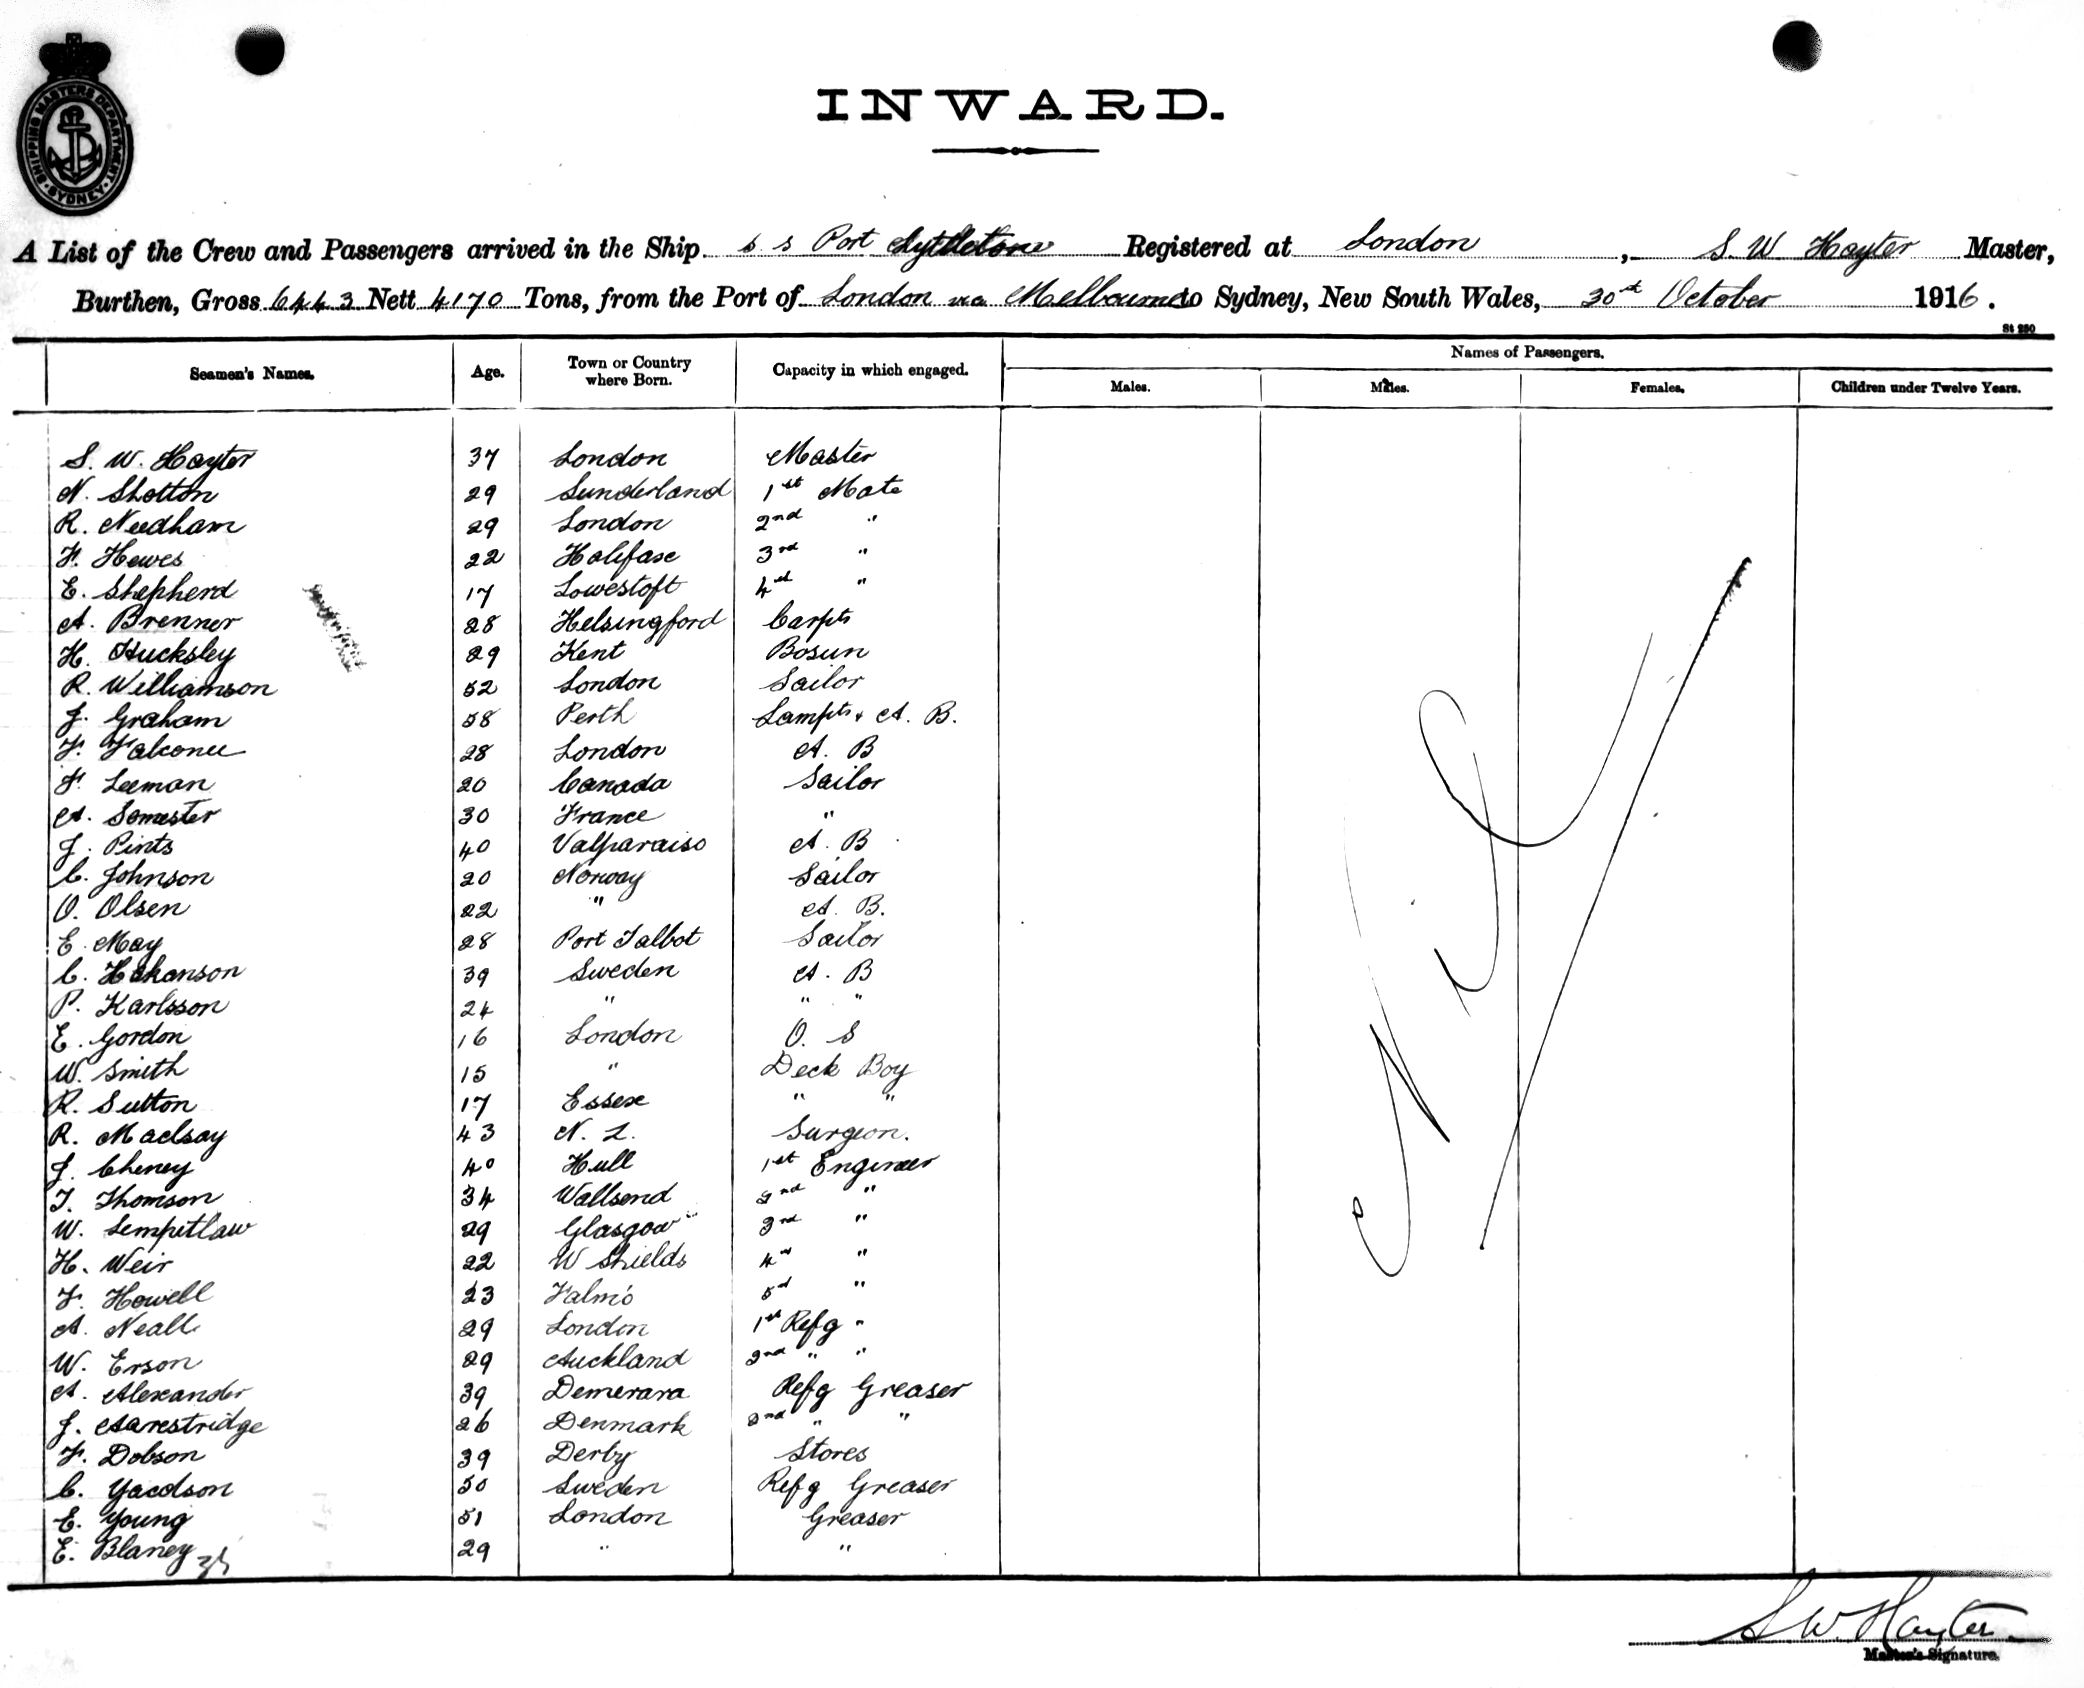 SHIPPING MASTERS DEPARTMENT
SYDNEY
INWARD.
A List of the Crew and Passengers arrived in the Ship s s Port Lyttleton Registered at London, S. W Hayter Master,
Burthen, Gross 6443 Nett 4170 Tons, from the Port of London via Melbourne to Sydney, New South Wales, 30th October 1916.
St 230
Seamen's Names. Age. Town or Country where Born. Capacity in which engaged. Names of Passengers.
Males. Males. Females. Children under Twelve Years.
S. W. Hayter 37 London Master
N. Shotton 29 Sunderland 1st Mate
R. Needham 29 London 2nd "
F. Hewes 22 Halifax 3rd "
E. Shepherd 17 Lowestoft 4th "
A. Brenner 28 Helsingford Carptr
H. Hucksley 29 Kent Bosun
R. Williamson 52 London Sailor
J. Graham 58 Perth Lampts + A. B.
F. Falconer 28 London A. B
F. Leeman 20 Canada Sailor
A. Somester 30 France "
J. Pints 40 Valparaiso A. B
C. Johnson 20 Norway Sailor
O. Olsen 22 " A. B.
E. May 28 Port Talbot Sailor
C. Hakanson 39 Sweden A. B
P. Karlsson 24 " " "
E. Gordon 16 London O. S
W. Smith 15 " Deck Boy
R. Sutton 17 Essex " "
R. Maclsay 43 N. Z. Surgeon.
J. Cheney 40 Hull 1st Engineer
T. Thomson 34 Wallsend 2nd "
W. Lempitlaw 29 Glasgow 3rd "
H. Weir 22 W Shields 4th "
F. Howell 23 Falmo 5th "
A. Neall 29 London 1st Refg "
W. Erson 29 Auckland 2nd " "
A. Alexander 39 Demerara Refg Greaser
J. Aarestridge 26 Denmark 2nd " "
F. Dobson 39 Derby Stores
C. Yacdson 50 Sweden Refg Greaser
E. Young 51 London Greaser
E. Blaney 29 " "
35
Nil
S W. Hayter
Master's Signature.